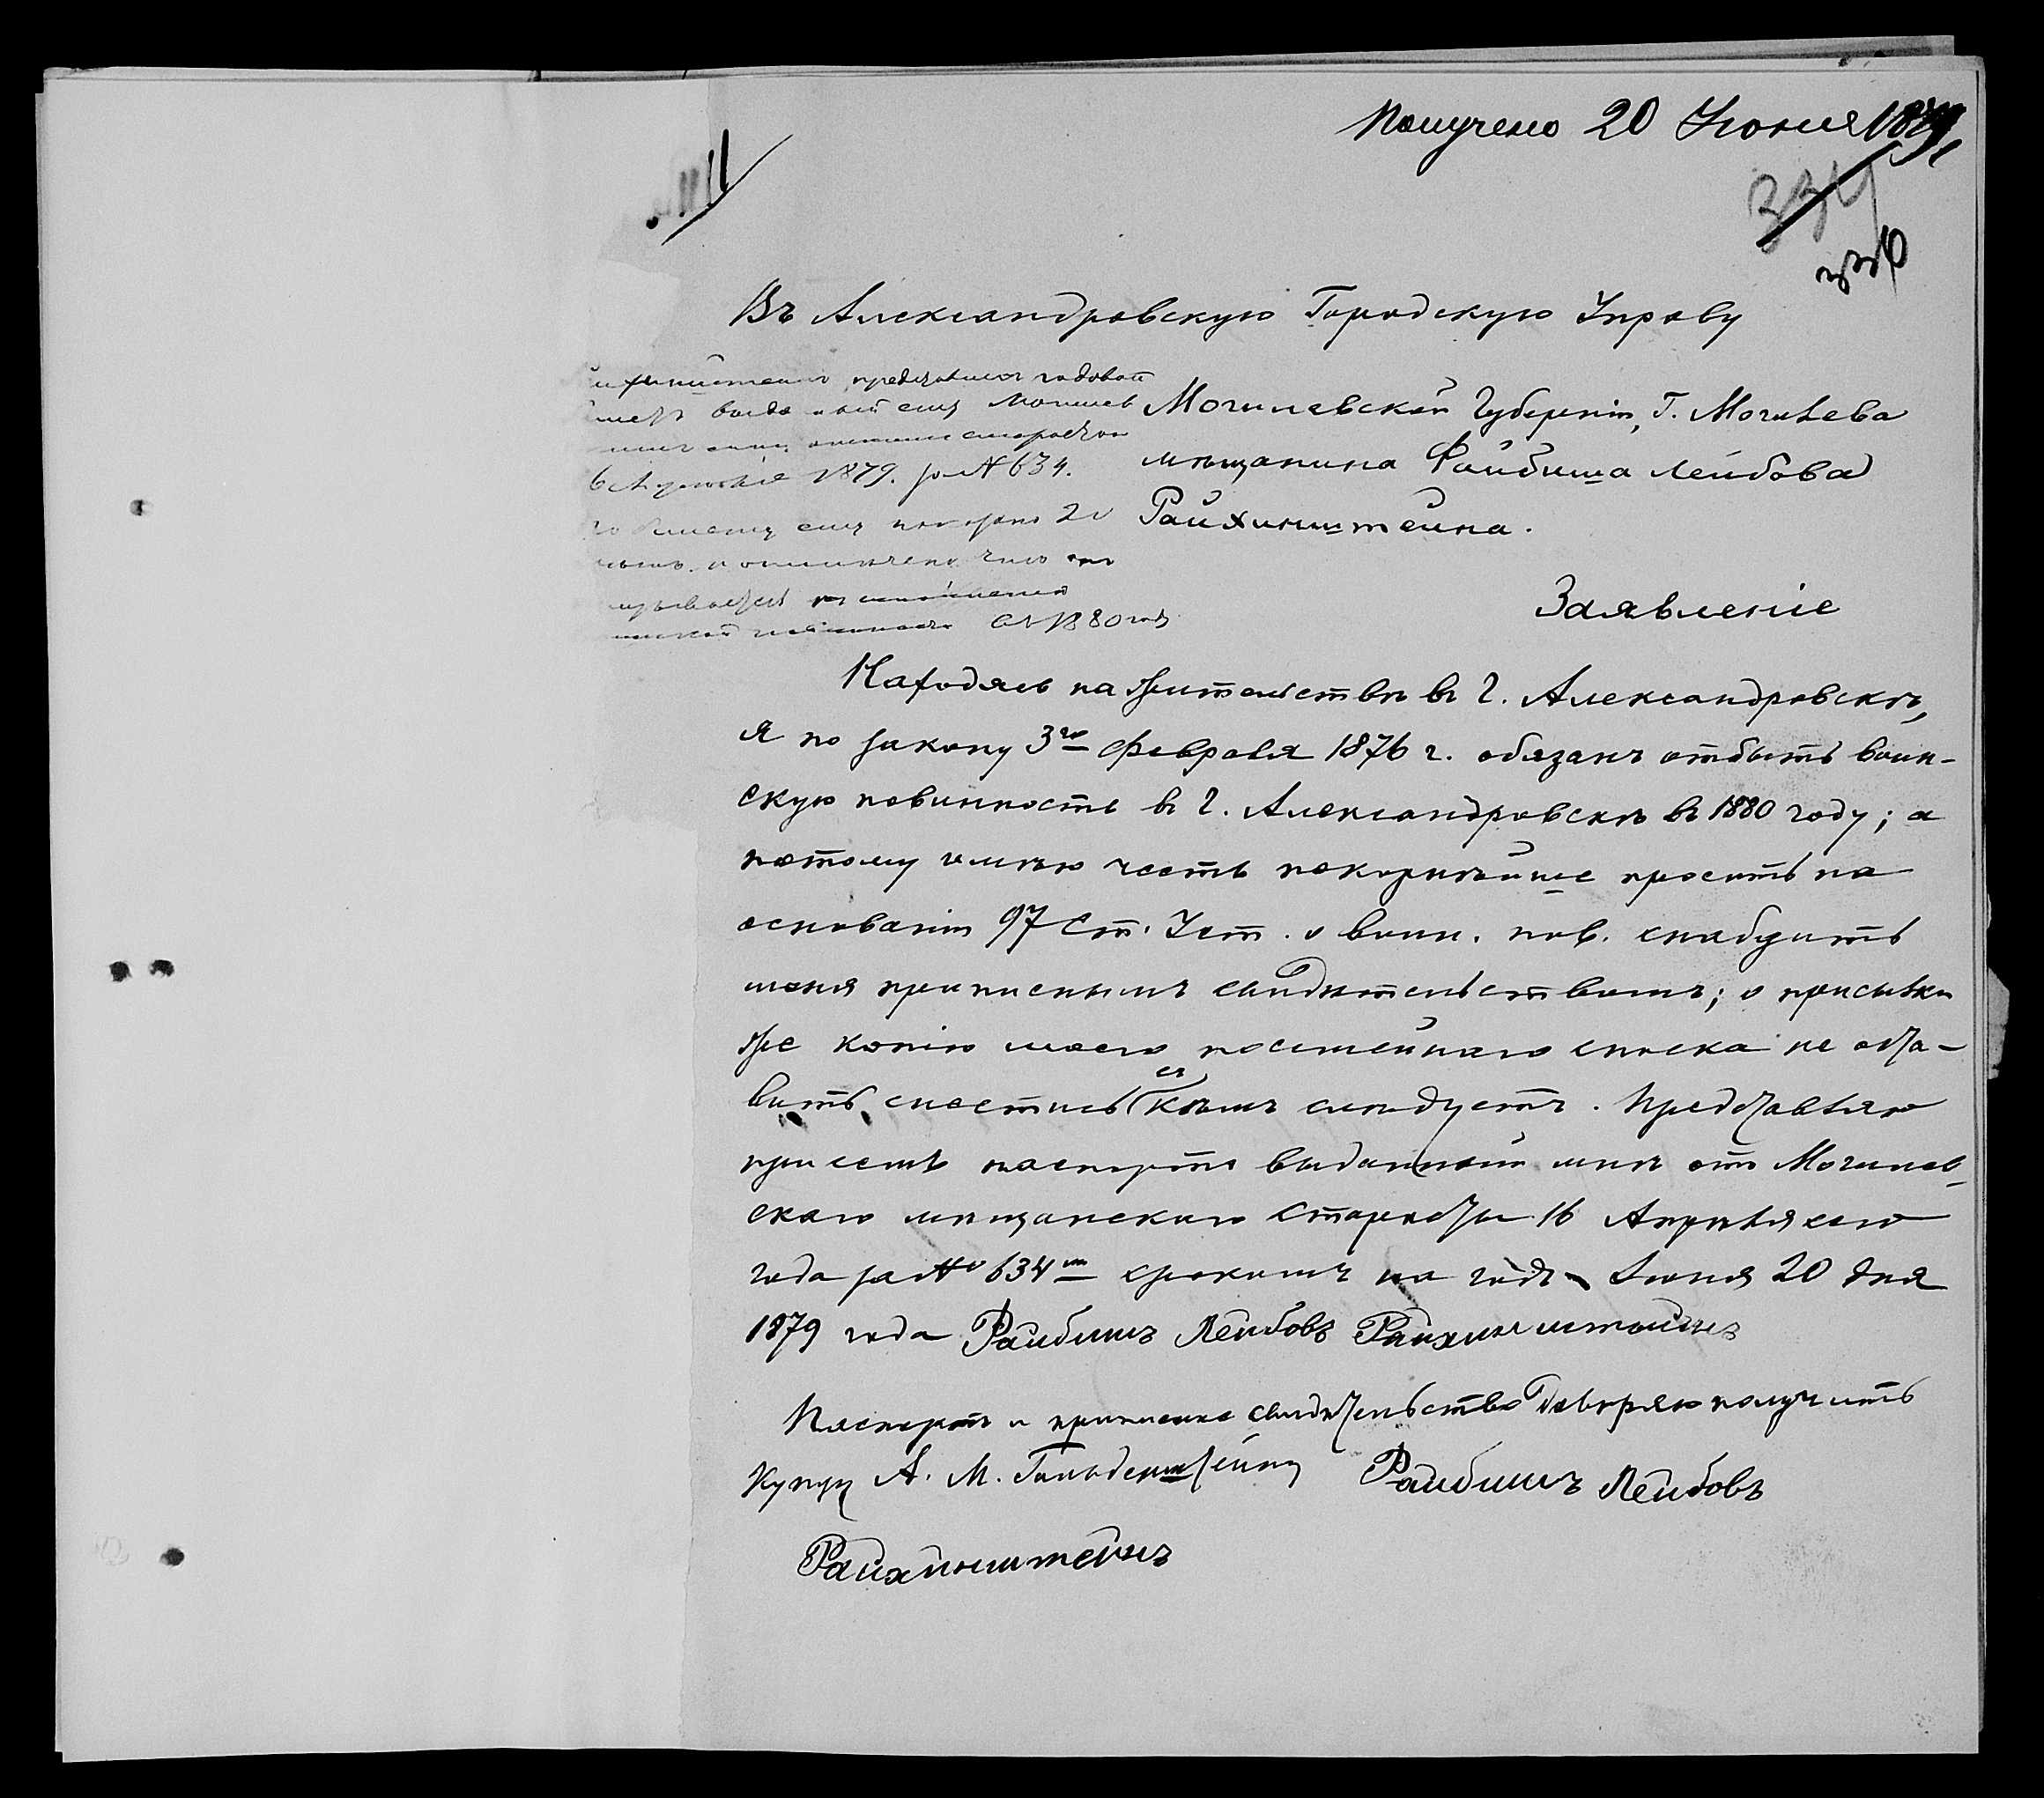 Получено 20 Іюня 1879
11
334
336
Въ Александровскую Городскую Управу
представилъ годовой
выданный ему Могилев
6 Апреля 1879. за № 634.
ему 20
съ 1880 года
Могилевской Губерніи, Г. Могилева
мѣщанина Файбиша Лейбова
Райхинштейна.
Заявленіе
Находясь на жительствѣ въ г. Александровскѣ,
я по закону 3го Февраля 1876 г. обязанъ отбыть воин-
скую повинность въ г. Александровскѣ въ 1880 году; а
потому имѣю честь покорнѣйше просить на
основаніи 97 Ст. Уст. о воин. пов. снабдить
меня приписнымъ свидѣтельствомъ; о присылкѣ
же копію моего посемейнаго списка не оста-
вить снестись съ кѣмъ слѣдуетъ. Представляю
при семъ паспортъ выданный мнѣ отъ Могилев-
скаго мѣщанскаго Старосты 16 Апрѣля сего
года за № 634м срокомъ на годъ. Іюня 20 дня
1879 года Файбишъ Лейбовъ Райхинштейнъ
Паспортъ и приписное свидѣтельство Довѣряю получить
Купцу А. М. Гольденштейну Файбишъ Лейбовъ
Райхинштейнъ